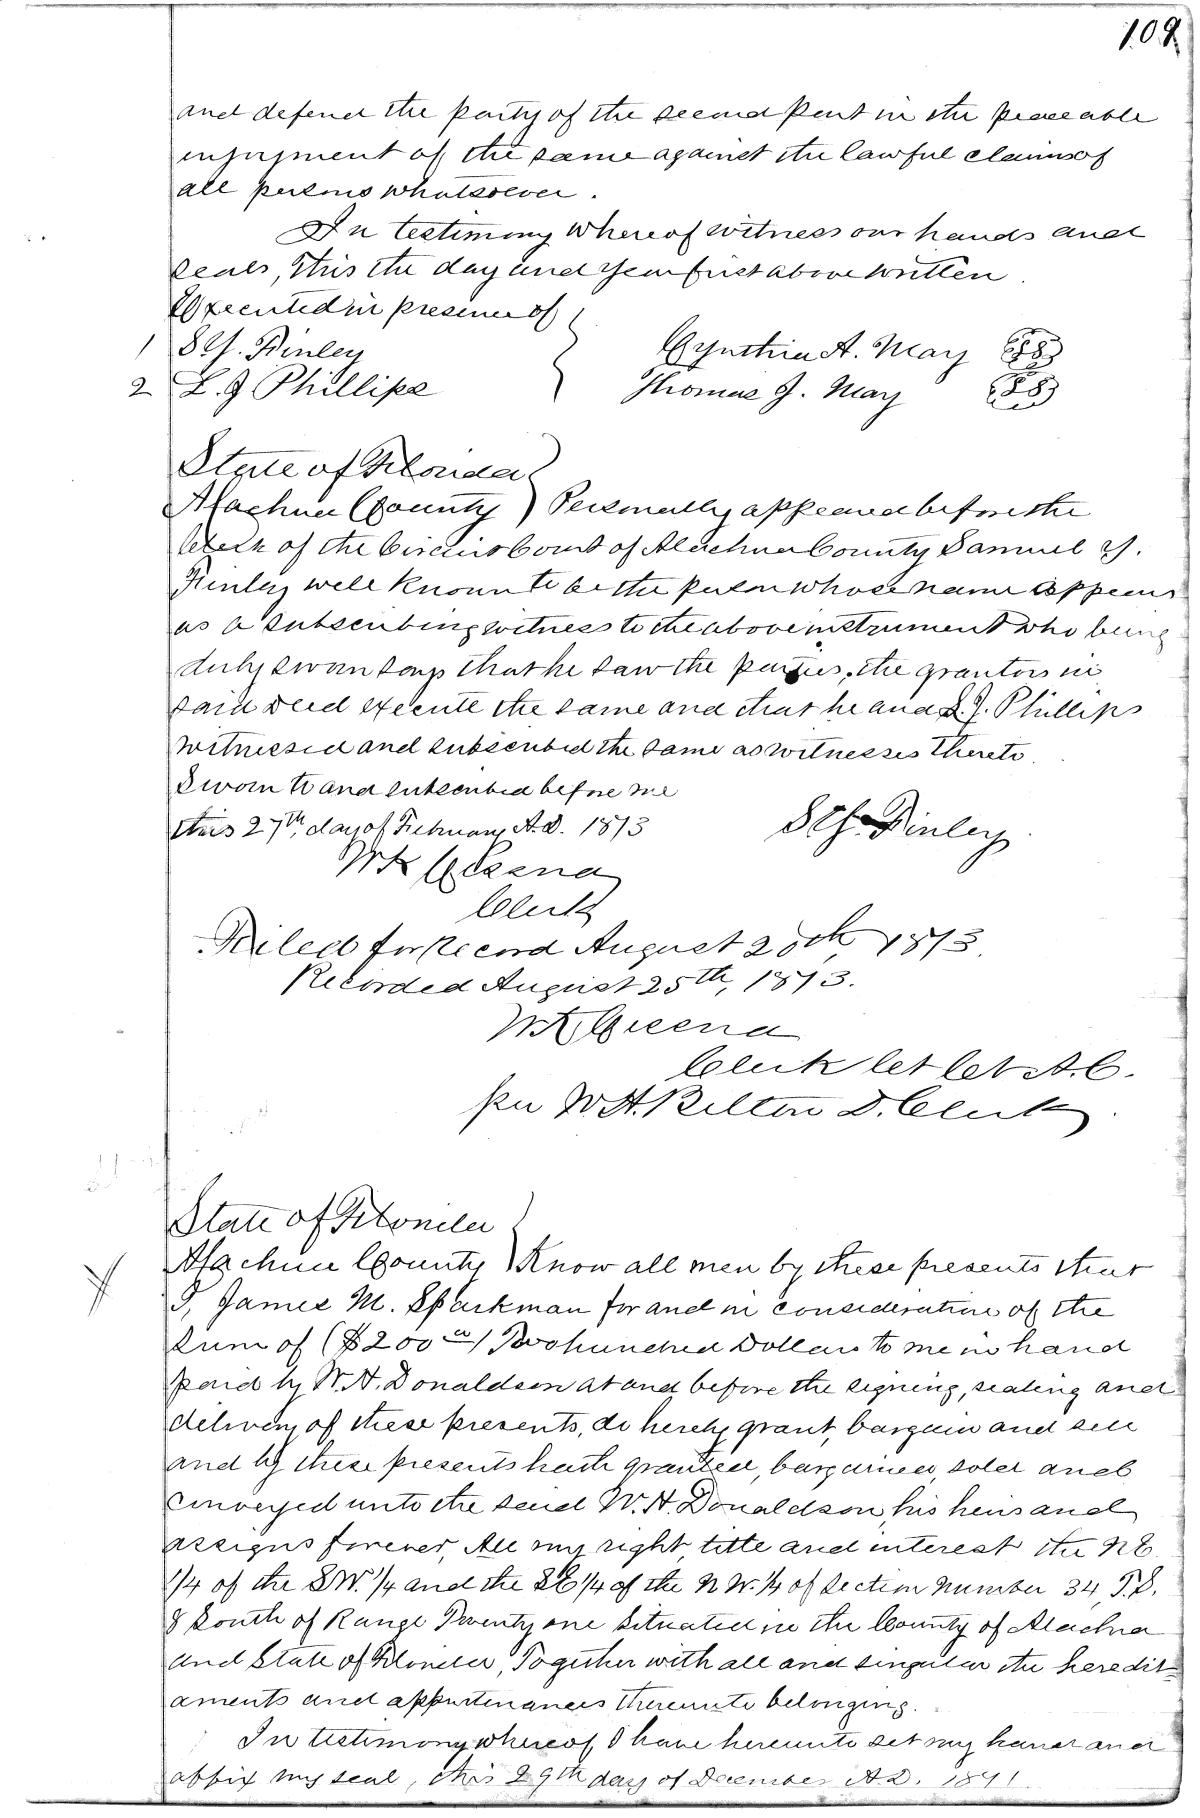 109
and defend the party of the second part in the peaceable
enjoyment of the same against the lawful claims of
all persons whatsoever.
In testimony whereof witness our hands and
seals, this the day and year first above written.
Executed in presence of
1 S Y. Finley
Cynthia A. May
2 L. J Phillips
Thomas J. May
State of Florida
Alachua County ) Personally appeared before the
Clerk of the Circuit Court of Alachua County Samuel Y.
Finley well known to be the person whose name appears
as a subscribing witness to the above instrument who being
duly sworn says that he saw the parties, the grantors in
said deed execute the same and that he and L. J. Phillips
witnessed and subscribed the same as witnesses thereto.
Sworn to and subscribed before me
this 27th, day of February A.D. 1873
S Y. Finley
W K Cessna
Clerk
Filed for Record August 25th, 1873.
Recorded August 25th, 1873.
W K Cessna
Clerk Cct Ct A.C.
per W. H. Belton D. Clerk
State of Florida
Alachua County } Know all men by these presents that
I, James M. Sparkman for and in consideration of the
sum of ($200 00/) Two hundred Dollars to me in hand
paid by W. H. Donaldson at and before the signing, sealing and
delivery of these presents, do hereby grant, bargain and sell
and by these presents hath granted, bargained, sold and
conveyed unto the said W. H. Donaldson, his heirs and
assigns forever, All my right, title and interest the N E
1/4 of the S W. 1/4 and the S E 1/4 of the N W. 1/4 of Section number 34, T. S.
8 South of Range Twenty one Situated in the County of Alachua
and State of Florida, Together with all and singular the heredit=
aments and appurtenances thereunto belonging.
In testimony whereof I have hereunto set my hand and
affix my seal, this 29th day of December A.D. 1871.